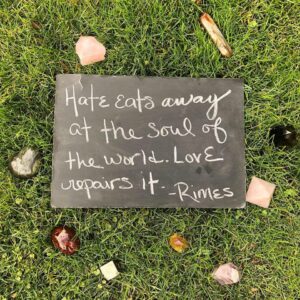 Hate Eats away
at the Soul of
the world. Love
repairs it. -Rimes